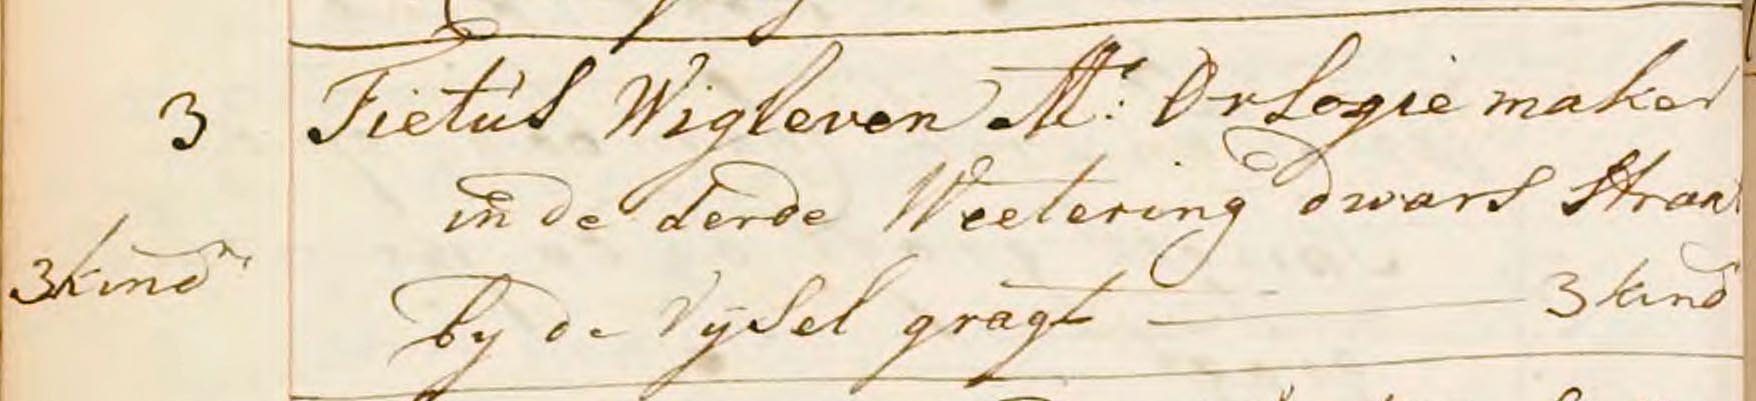 3 Fietus Wigleven Mr: Orlogie maker
in de derde Weetering dwars Straat
3 kindn
by de Vÿsel gragt — 3 kind